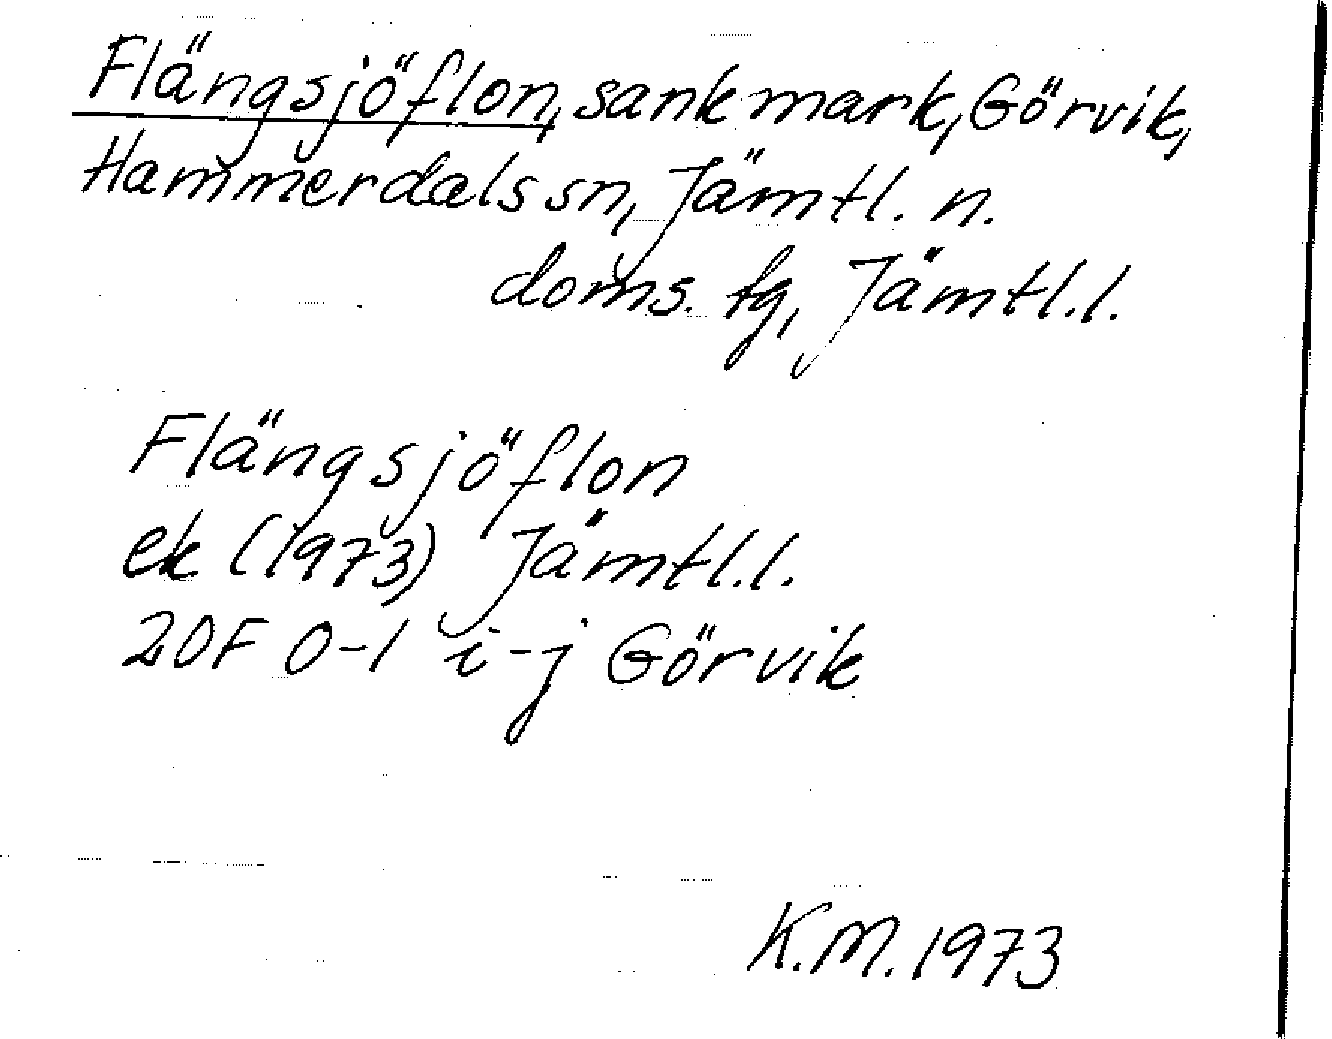 Flängsjöflon, sankmark, Görvik,
Hammerdals sn, Jämtl. n.
doms. tg, Jämtl.l.
Flängsjöflon
ek (1973) Jämtl.l.
20F 0-1 i-j Görvik
K.M. 1973